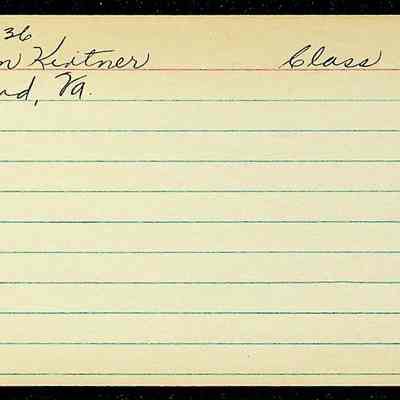 36
n Kintner Class
nd, Va.